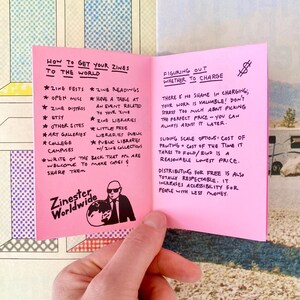 HOW TO GET YOUR ZINES
TO THE WORLD
★ ZINE FESTS
★ OPEN MICS
★ ZINE DISTROS
★ ETSY
★ OTHER SITES
★ ART GALLERIES
★ COLLEGE
CAMPUSES
★ ZINE READINGS
★ HAVE A TABLE AT
AN EVENT RELATED
TO YOUR ZINE
★ ZINE LIBRARIES
★ LITTLE FREE
LIBRARIES PUBLIC
★ PUBLIC LIBRARIES
W/ ZINE COLLECTIONS
★ WRITE ON THE BACK THAT PPL ARE
WELCOME TO MAKE COPIES &
SHARE THEM
Zinester
Worldwide
FIGURING OUT
WHETHER TO CHARGE
$
THERE IS NO SHAME IN CHARGING,
YOUR WORK IS VALUABLE! DON'T
STRESS TOO MUCH ABOUT PICKING
THE PERFECT PRICE - YOU CAN
ALWAYS ADJUST IT LATER.
SLIDING SCALE OPTIONS: COST OF
PRINTING + COST OF THE TIME IT
TAKES TO FOLD/BIND IS A
REASONABLE LOWEST PRICE.
DISTRIBUTING FOR FREE IS ALSO
TOTALLY RESPECTABLE. IT
INCREASES ACCESSIBILITY FOR
PEOPLE WITH LESS MONEY.